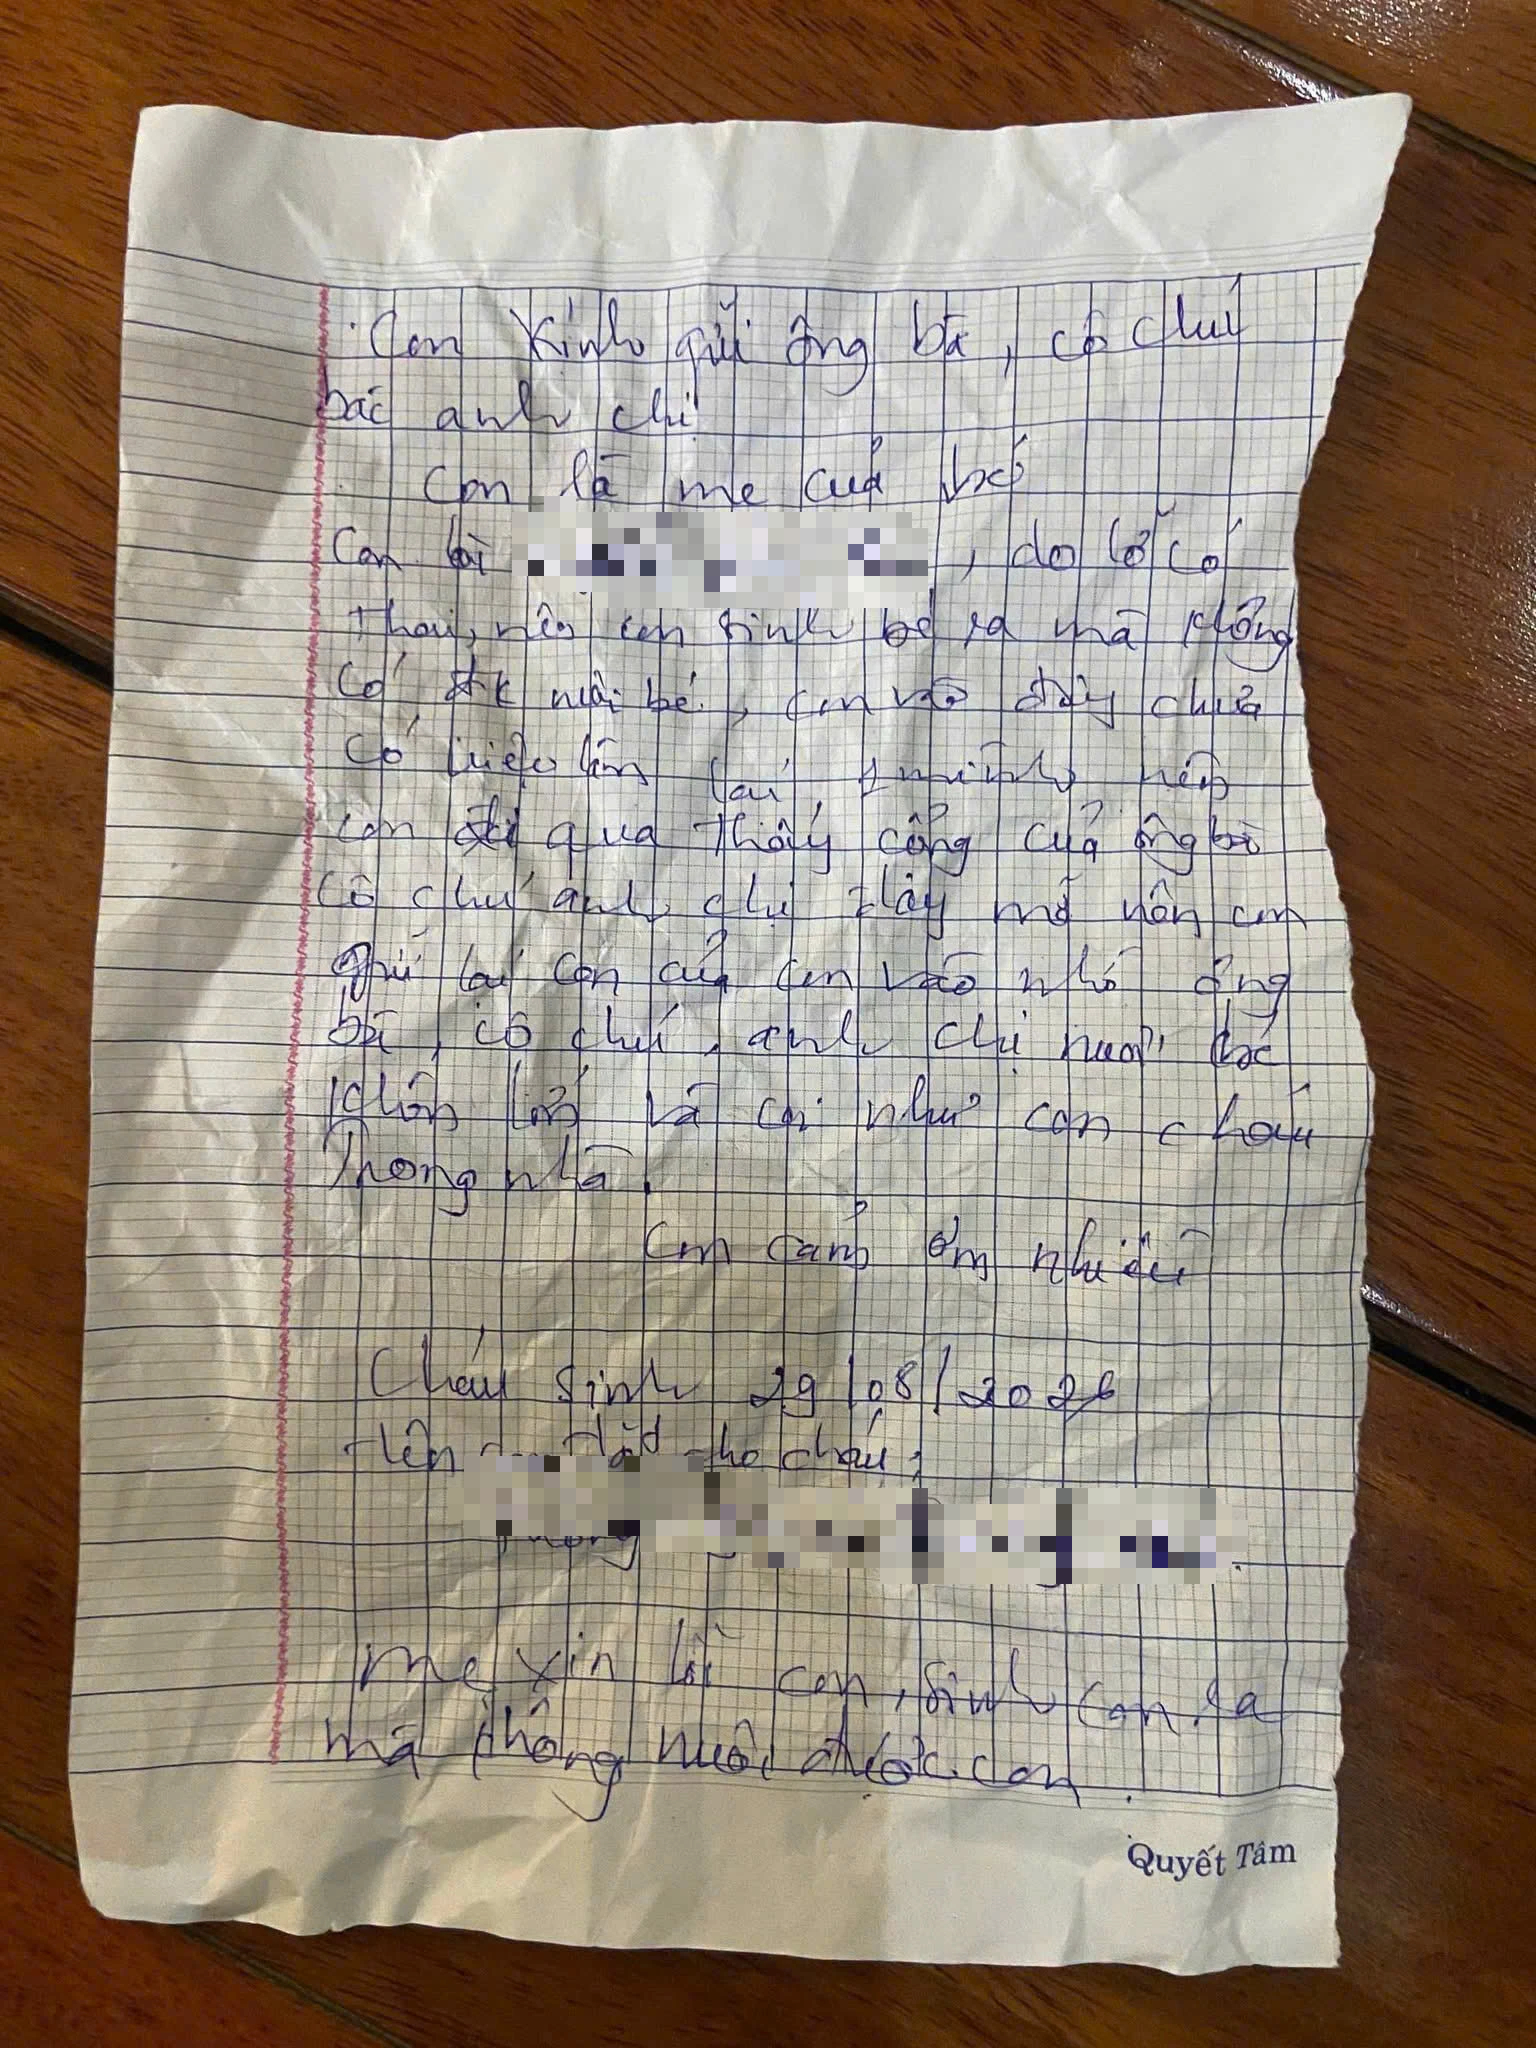 Con Kính gửi ông bà, cô chú
bác anh chị
Con là mẹ của bé
Con là , do lỡ có
thai, nên con sinh bé ra mà không
có đk nuôi bé, con vào đây chưa
có việc làm lại 1 mình nên
con đi qua thấy cổng của ông bà
cô chú anh chị đây mở nên con
gửi lại con của con vào nhờ ông
bà, cô chú, anh chị nuôi bé
khôn lớn và coi như con cháu
Trong nhà.
Con cảm ơn nhiều
Cháu sinh 29/08/2026
tên đặt cho cháu:
Mẹ xin lỗi con, sinh con ra
mà không nuôi được con.
Quyết Tâm